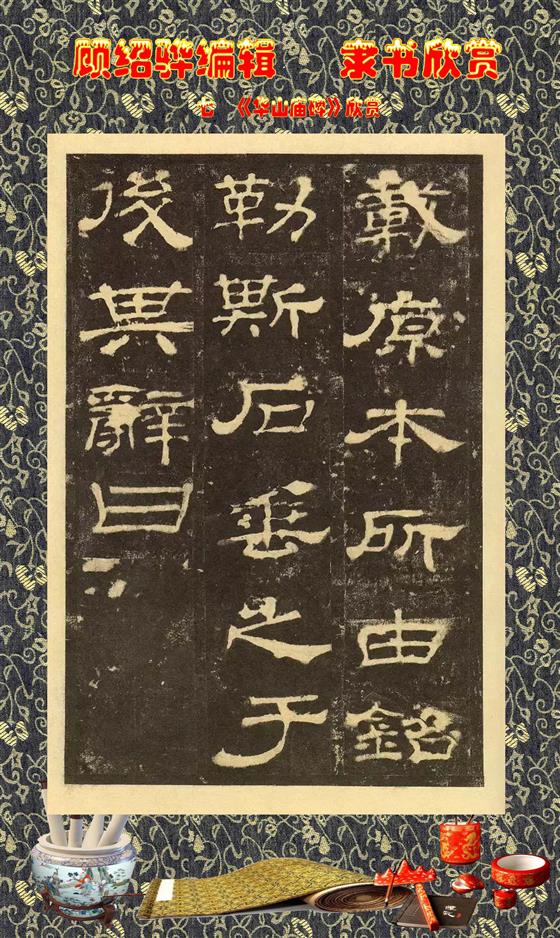 顾绍骅编辑 隶书欣赏
《华山庙碑》欣赏
載原本所由銘
勒斯石垂之于
後其辭曰